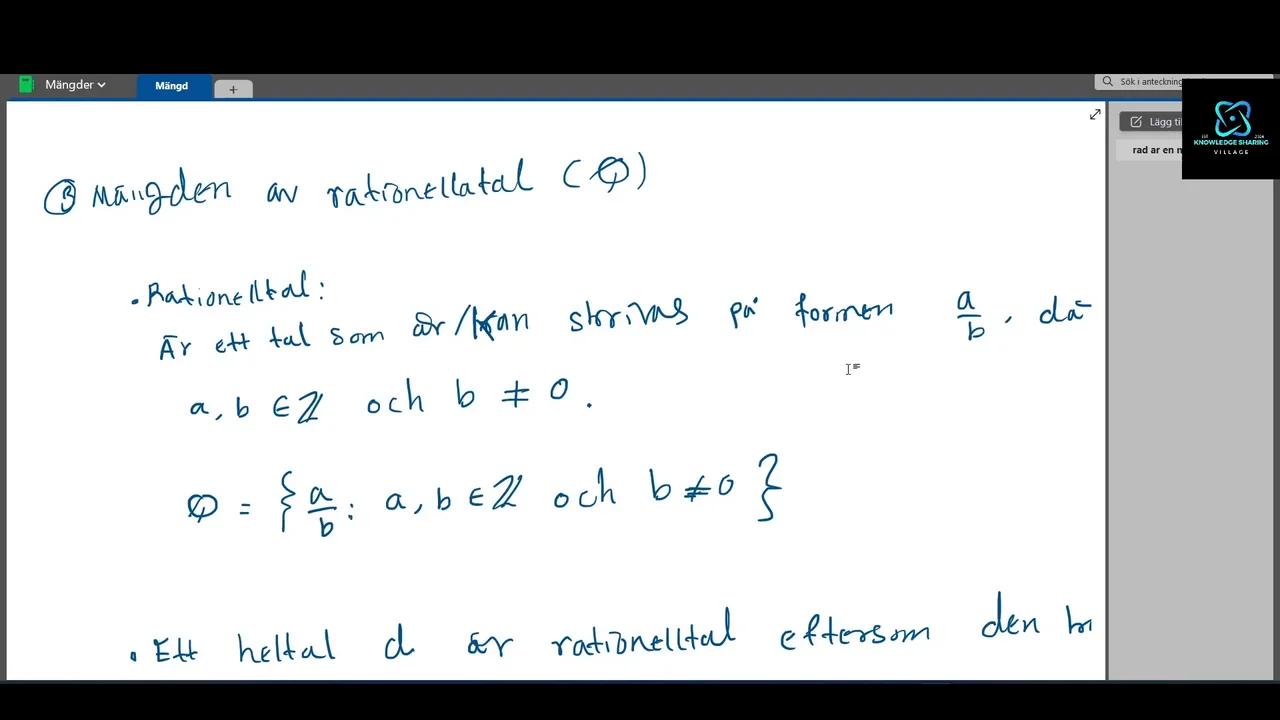 Mängder
Mängd
+
Sök i antecknin
Lägg til
rad ar en n
KNOWLEDGE SHARING
VILLAGE
③ Mängden av rationellatal (ℚ)
• Rationelltal:
Är ett tal som är/kan skrivas på formen a/b, då
a, b ∈ ℤ och b ≠ 0.
ℚ = { a/b : a, b ∈ ℤ och b ≠ 0 }
• Ett heltal d är rationelltal eftersom den